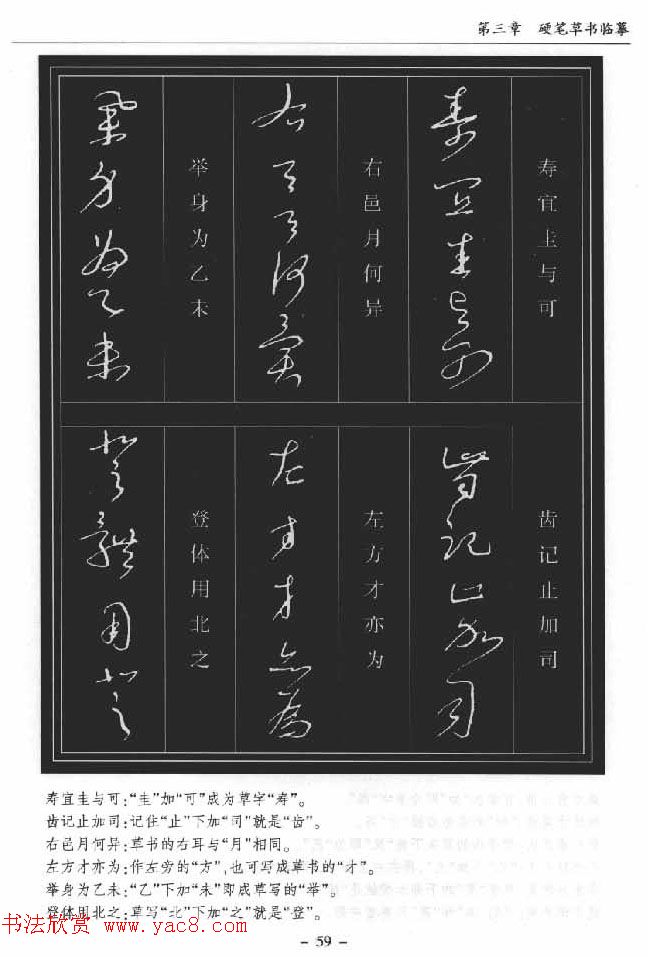 第三章 硬笔草书临摹
寿宜圭与可
寿宜圭与可
右邑月何异
右邑月何异
举身为乙未
举身为乙未
齿记止加司
齿记止加司
左方才亦为
左方才亦为
登体用北之
登体用北之
寿宜圭与可:“圭”加“可”成为草字“寿”。
齿记止加司:记住“止”下加“司”就是“齿”。
右邑月何异:草书的右耳与“月”相同。
左方才亦为:作左旁的“方”,也可写成草书的“才”。
举身为乙未:“乙”下加“未”即成草写的“举”。
登体用北之:草写“北”下加“之”就是“登”。
书法欣赏 www.yac8.com
- 59 -